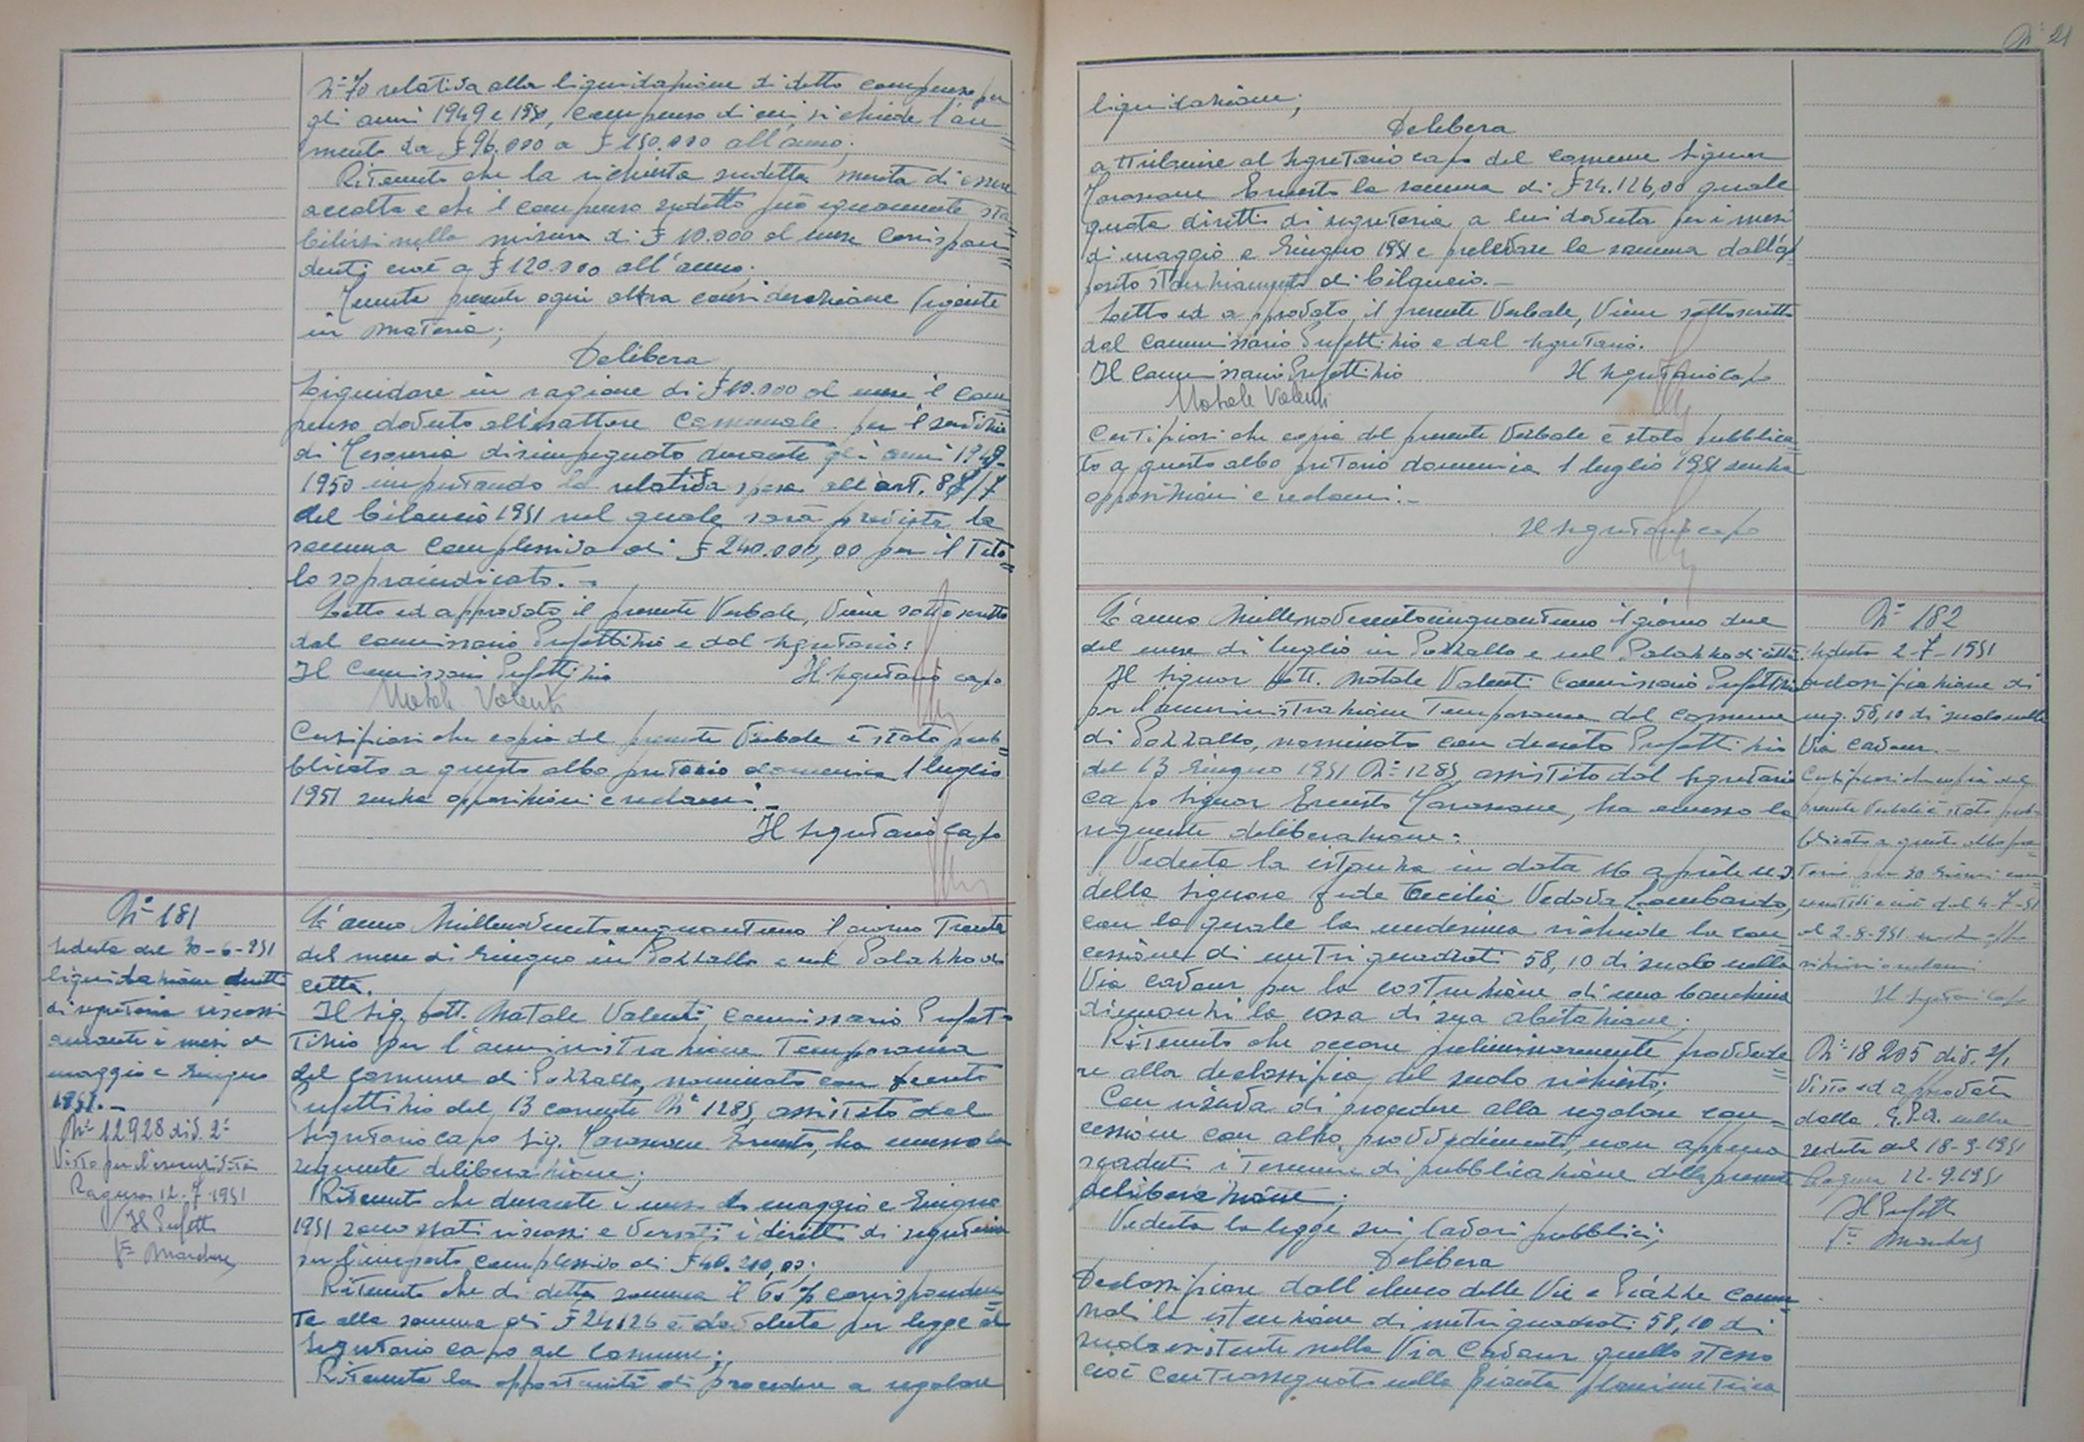 N° 70 relativa alla liquidazione di detto compenso per
gli anni 1949 e 1950, compenso di cui si chiede l'au=
mento da £ 96.000 a £ 150.000 all'anno;
Ritenuto che la richiesta sudetta merita di essere
accolta e che il compenso sudetto può equamente sta=
bilirsi nella misura di £ 10.000 al mese corrispon=
denti cioè a £ 120.000 all'anno;
Tenuta presente ogni altra considerazione vigente
in materia;
Delibera
Liquidare in ragione di £ 10.000 al mese il com=
penso dovuto all'esattore Comunale per il servizio
di Tesoreria disimpegnato durante gli anni 1949-
1950 imputando la relativa spesa all'art.
del bilancio 1951 nel quale sarà prevista la
somma complessiva di £ 240.000,00 per il tito=
lo sopraindicato. -
Letto ed approvato il presente Verbale, viene sottoscritto
dal commissario Prefettizio e dal Segretario:
Il Commissario Prefettizio Il Segretario capo
Natale Valenti
Certificasi che copia del presente Verbale è stato pub=
blicato a questo albo pretorio domenica 1 luglio
1951 senza opposizioni e reclami. -
Il Segretario Capo
N° 181
Seduta del 30-6-951
liquidazione diritti
di segreteria riscossi
durante i mesi di
maggio e Giugno
1951. -
N° 12928 div. 2ª
Visto per l'esecutività
Ragusa 12-7-1951
Il Prefetto
L'anno Millenovecentocinquantuno il giorno Trenta
del mese di Giugno in Pozzallo e nel Palazzo di
città.
Il Sig. Dott. Natale Valenti, Commissario Prefet=
tizio per l'amministrazione Temporanea
del comune di Pozzallo, nominato con Decreto
Prefettizio del 13 corrente N° 1285 assistito dal
Segretario capo Sig. Tarascone Ernesto, ha emesso la
seguente deliberazione;
Ritenuto che durante i mesi di maggio e Giugno
1951 sono stati riscossi e versati i diritti di segreteria
per l'importo complessivo di £ 40.210,00;
Ritenuto che di detta somma il 60% corrisponden=
te alla somma di £ 24126 è dovuta per legge al
Segretario capo del Comune;
Ritenuta la opportunità di procedere a regolare
N° 21
liquidazione;
Delibera
attribuire al Segretario capo del comune Signor
Tarascone Ernesto la somma di £ 24.126,00 quale
quota diritti di segreteria a lui dovuta per i mesi
di maggio e Giugno 1951 e prelevare la somma dall'ap=
posito stanziamento di bilancio. -
Letto ed approvato il presente Verbale, viene sottoscritto
dal Commissario Prefettizio e dal Segretario.
Il Commissario Prefettizio Il Segretario Capo
Natale Valenti
Certificasi che copia del presente Verbale è stato pubblica=
to a questo albo pretorio domenica 1 luglio 1951 senza
opposizioni e reclami. -
Il Segretario capo
L'anno Millenovecentocinquantuno il giorno due
del mese di luglio in Pozzallo e nel Palazzo di città
Il Signor Dott. Natale Valenti Commissario Prefettizio
per l'amministrazione Temporanea del comune
di Pozzallo, nominato con decreto Prefettizio
del 13 Giugno 1951 N° 1285 assistito dal Segretario
capo Signor Ernesto Tarascone, ha emesso la
seguente deliberazione:
Veduta la istanza in data 16 aprile u.s.
della Signora Fede Cecilia Vedova Lombardo,
con la quale la medesima richiede la con=
cessione di metri quadrati 58,10 di suolo nella
Via Cavour per la costruzione di una banchina
dinnanzi la casa di sua abitazione;
Ritenuto che occorre preliminarmente provvede=
re alla declassifica del suolo richiesto;
Con riserva di procedere alla regolare con=
cessione con altro provvedimento, non appena
scaduti i termini di pubblicazione della presente
deliberazione;
Veduta la legge sui lavori pubblici;
Delibera
Declassificare dall'elenco delle Vie e Piazze Comu=
nali la estenzione di metri quadrati 58,10 di
suolo esistente nella Via Cavour quello stesso
cioè contrassegnato nella pianta planimetrica
N° 182
Seduta 2-7-1951
Declassificazione di
mq. 58,10 di suolo nella
Via Cavour. -
Certificasi che copia del
presente Verbale è stato pub=
blicato a questo albo pre=
torio per 30 giorni con=
secutivi e cioè dal 4-7-51
al 2-8-951 senza oppo
sizioni o reclami
Il Segretario Capo
N° 18205 div. 2/1
Visto ed approvato
dalla G.P.A. nella
seduta del 18-9-1951
Ragusa 12-9-1951
Il Prefetto